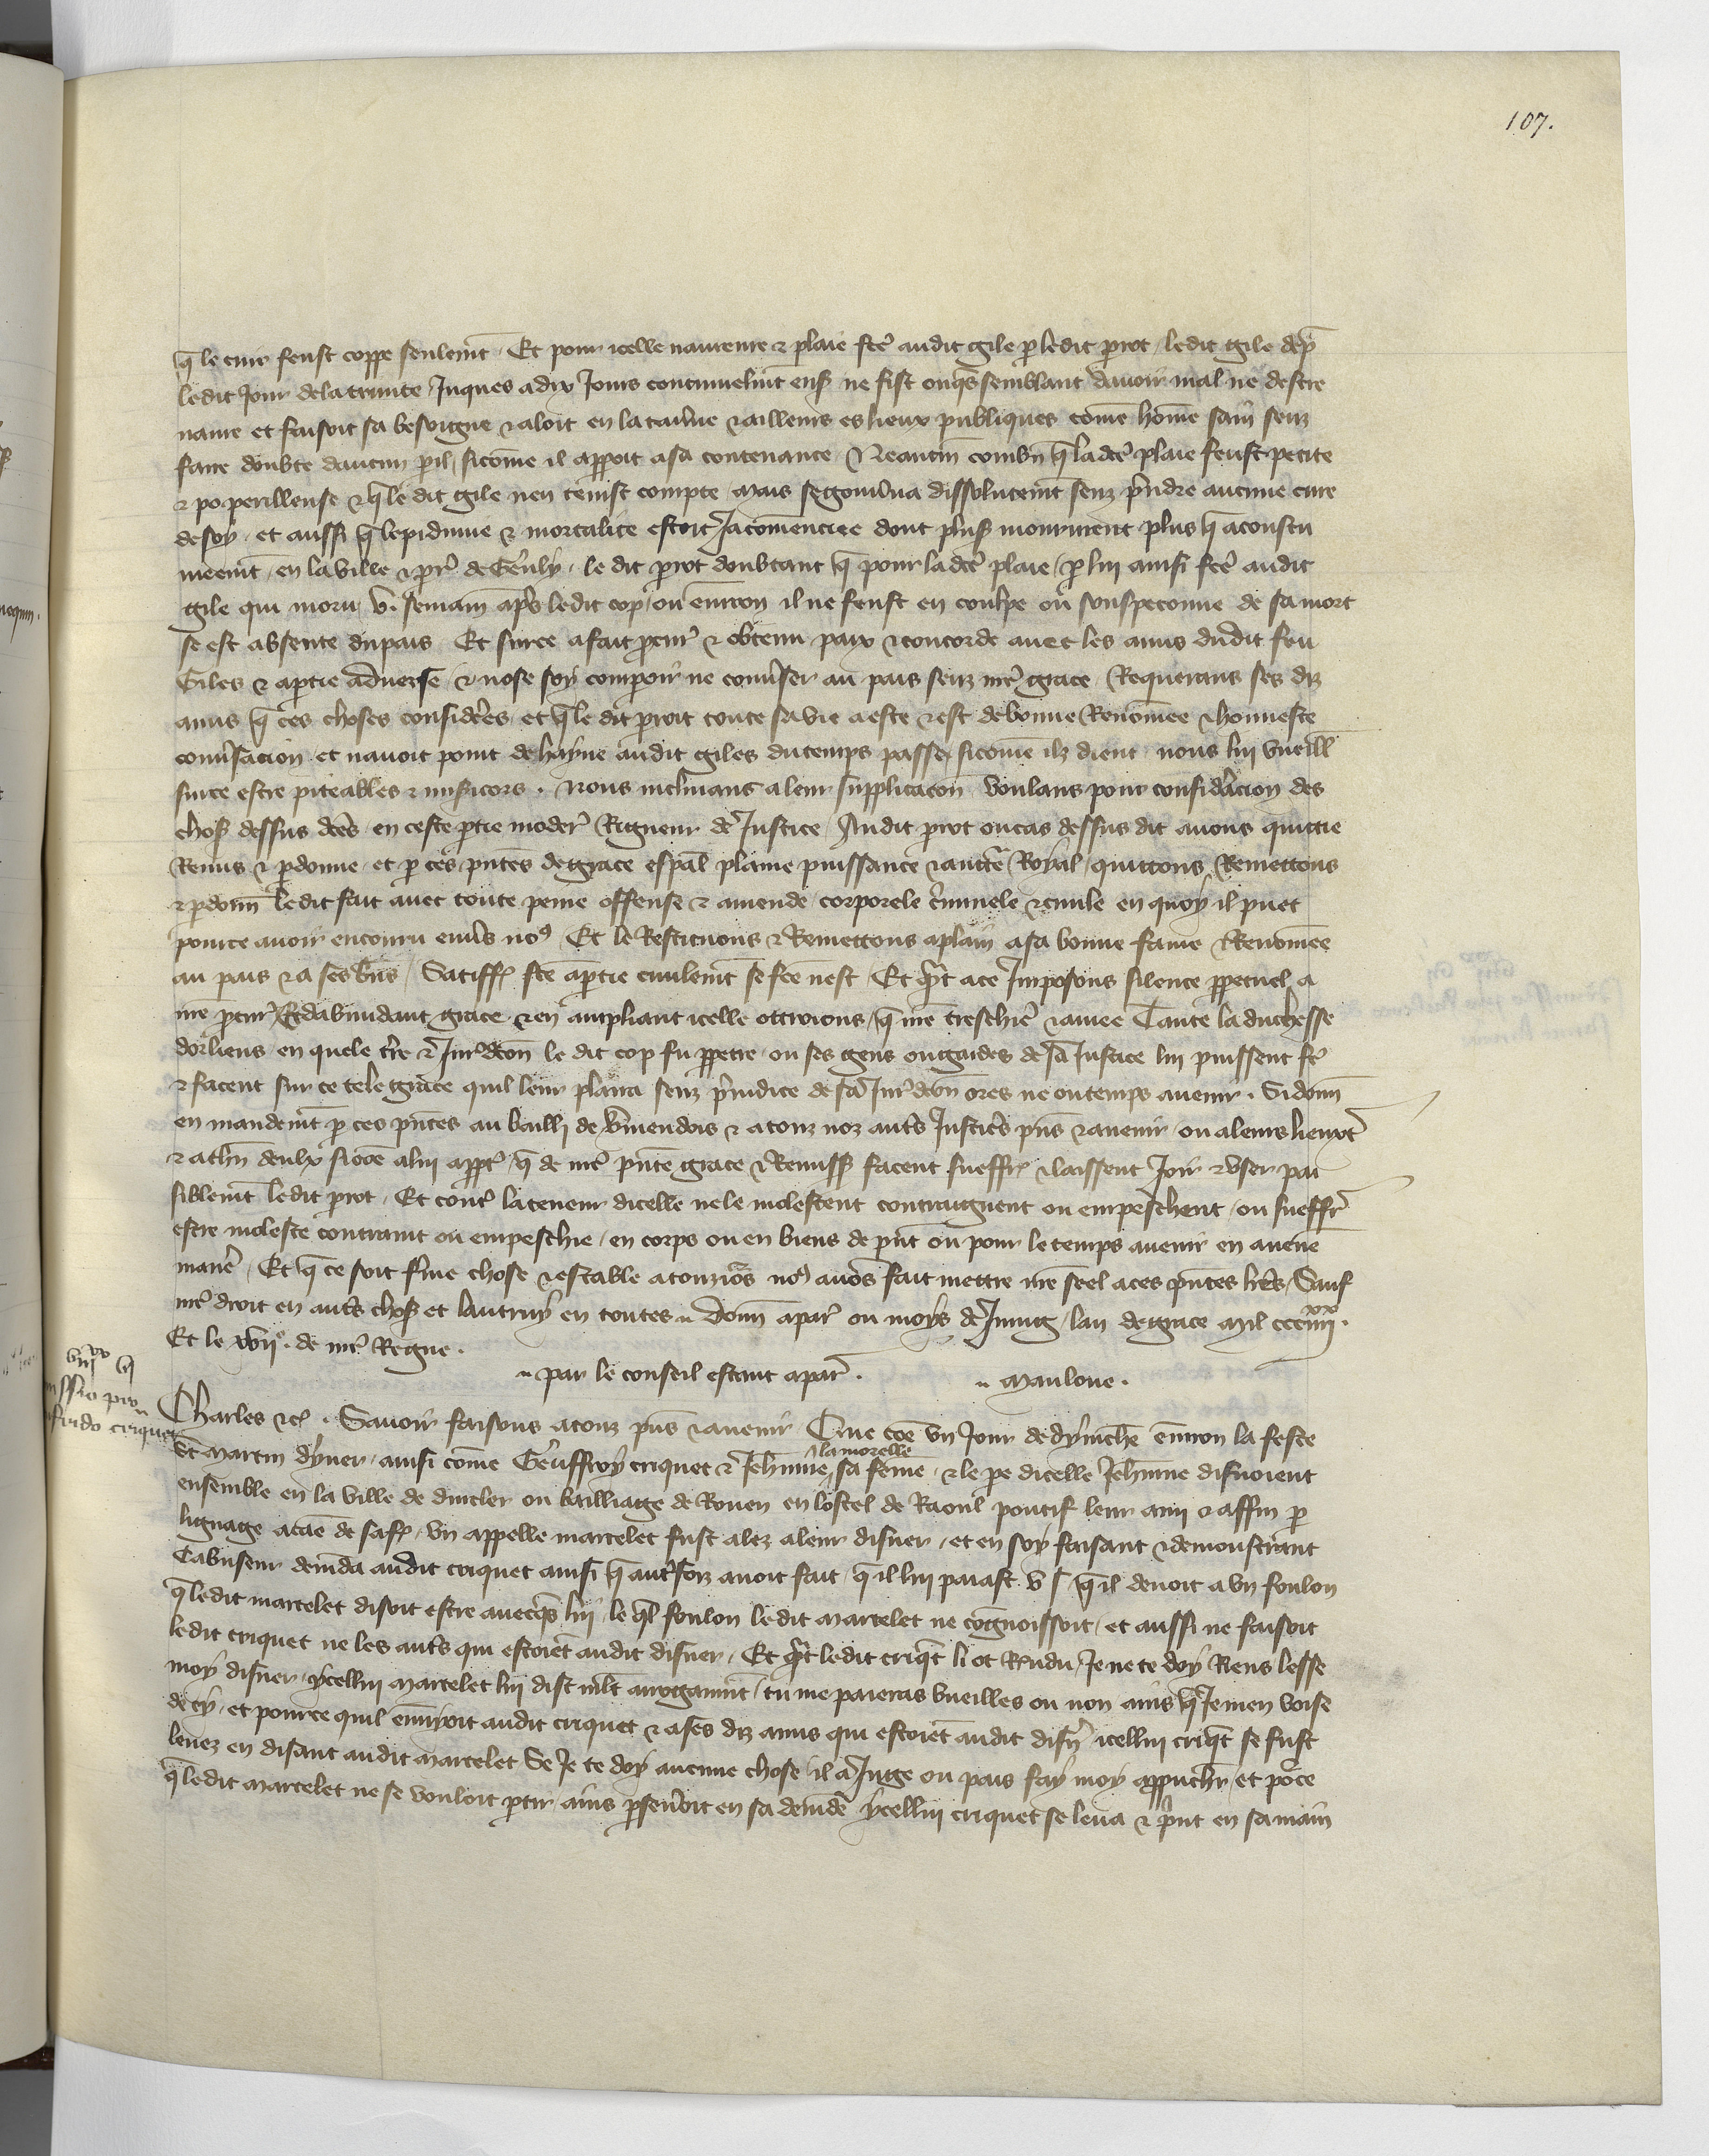 107.
q̃ le cuir feust coppe seulemt̃ . Et pour icelle navreure & plaie fc̃e audit gile p ledit perot / ledit gile dep̃
ledit Jour de la trinite Juques a dix Jours continuelmt̃ ens̃ ne fist onq̃s semblant davoir mal ne destre
navre et faisoit sa besoigne & aloit en la tav̾ne & ailleurs es lieux publiques com̃e hom̃e sain senz
faire doubte daucun peril / sicom̃e il apparoit a sa contenance / Neantm̃ combn̄ q̃ la dc̃e plaie feust petite
& po perilleuse & q̃ le dit gile nen tenist compte / mais se gouv̾na dissolutemt̃ senz p̾ndre aucune cure
de soy . et aussi q̃ lepidimie & mortalite estoit Ja com̃enciee dont plus̃ mouroient plus q̃ acoustu
meemt̃ / en la ville & p̾r de Genly . le dit perot doubtant q̃ pour la dc̃e plaie / p lui ainsi fc̃e audit
gile qui moru . v. semain̄ ap̾s ledit cop / ou environ il ne feust en coulpe ou souspeconne de sa mort
se est absente du pais Et sur ce a fait pcur̾ & obtenu paix & concorde avec les amis dudit feu
Giles & a ptie adverse / & nose soy comparoir ne conv̾ser au pais senz nr̃e grace / Requerans ses diz
amis q̃ ces choses consider̃es et q̃ le dit perot toute sa vie a este & est de bonne Renom̃ee & honneste
conv̾sacion et navoit point de hayne audit giles du temps passe / sicom̃e ilz dient nous lui vueill̃
sur ce estre piteables & mis̾icors . Nous inclinans a leur supplicacõn voulans pour considẽracion des
chos̃ dessus dc̃es / en ceste ptie moder̾ Rigueur de Justice / Audit perot ou cas dessus dit avons quittie
Remis & pdonne / et p ces pñtes de grace esp̃al plaine puissance & auct̃e Royal / quittons Remettons
& pdoñn ledit fait avec toute peine offense & amende corporele c̾minele & civile en quoy il puet
pour ce avoir encouru env̾s noꝯ Et le Restituons & Remettons a plain a sa bonne fame & Renom̃ee
au pais & a ses bñs / Satiffᷓ fc̃e a ptie civilemt̃ se fc̃e nest / Et q̾nt a ce Imposons silence ppetuel a
nr̃e pcur̾ Et dabundant grace & en ampliant icelle ottroions / q̃ nr̃e treschier̾ & amee Tante la duchesse
dorliens en quele tr̃e & Jur̾dicõn le dit cop fu ppetre / ou ses gens ou gardes de sa Justice lui puissent fr̃e
& facent sur ce tele grace quil leur plaira senz p̾judice de sa Jur̾dicõn ores ne ou temps avenir . Si donn̄
en mandemt̃ p ces pñtes au bailli de v̾mendois & a touz noz aut̾s Justic̾s pñs & avenir / ou a leurs lieuxt̾
& a chũn deulx sicõe a lui appt̾ q̃ de nr̃e pñte grace & Remiss̃ facent sueffrᷓ & laissent Joir & user pai
siblemt̃ ledit perot . Et contre̾ la teneur dicelle ne le molestent contraignent ou empeschent / ou sueffr̾
estre moleste contraint ou empeschie / en corps ou en biens de pñt ou pour le temps avenir en aucũe
manie̾ / Et q̃ ce soit f̾me chose & estable a touz jõrs noꝯ avõs fait mettre nr̃e seel a ces pñtes lr̃es / Sauf
nr̃e droit en aut̾s chos̃ et lautruy en toutes .. Donñ a par̾ ou moys de Juing / lan de grace mil ccciiiixx .
Et le xviiᵉ . de nr̃e Regne .
.. par le conseil estant a par̾ . .. Maulone .
viixx vi
ssio pro
frido criquet
Charles &cᷓ . Savoir faisons a touz pñs & avenir Que cõe un Jour de dymẽche environ la feste
st̃ Martin dyver / ainsi com̃e Geuffroy criquet & Jeh̃nne la morelle sa fem̃e & le pe dicelle Jeh̃nne disnoient
ensemble en la ville de ducler ou bailliage de Rouen en lostel de Raoul pontif leur ami & affin p
lignage a cãe de saf̃ᷓ / un appelle marcelet fust alez a leur disner / et en soy faisant & demonstrant
Cabuseur demãda audit criquet ainsi q̃ aut̾foiz avoit fait / q̃ il lui paiast v s̃ / q̃ il devoit a un foulon
q̃ ledit marcelet disoit estre avecq̃s lui / le q̃l foulon ledit marcelet ne cognoissoit / et aussi ne faisoit
ledit criquet ne les aut̾s qui estoiẽt audit disner / Et q̾nt ledit criq̃t li ot Rendu / Je ne te doy Riens lesse
moy disner / ycellui marcelet lui dist ml̃t arrogaumt̃ / tu me paieras vueilles ou non ains q̃ Je men voise
de cy / et pour ce quil ennuyoit audit criquet & a ses diz amis qui estoiẽt audit disñ icellui criq̃t se fust
levez en disant audit marcelet Se Je te doy aucune chose / il a Juge ou pais fay moy approuchr̃ / et põce
q̃ ledit marcelet ne se vouloit ptir / ains psev̾oit en sa demãde ycellui criquet se leva & p̾nt en sa main